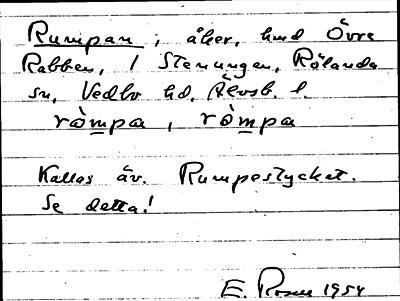 Rumpan, åker, hmd Övre
Rabben, 1 Stenungen, Rölanda
sn, Vedbo hd, Älvsb. l.
ròmpa, ròmpa
Kallas äv. Rumpestycket.
Se detta!
E. 1954